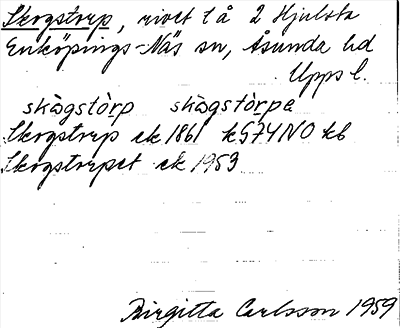 Skogstorp, rivet t å 2 Hjulsta
Enköpings-Näs sn, Åsunda hd
Uppsl.
skògstòrp skògstòrpe
Skogstorp ek 1861 kG74NO kb
Skogstorpet ek 1953
Birgitta Carlsson 1959